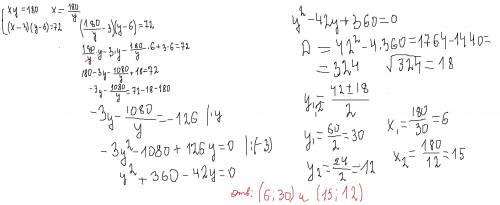 {xy=180 x=180/y
(x-3)(y-6)=72 (180/y-3)(y-6)=72
180/y·y-3·y-180/y·6+3·6=72
180-3y-1080/y+18=72
-3y-1080/y=72-18-180
-3y-1080/y=-126 |·y
-3y²-1080+126y=0 |:(-3)
y²+360-42y=0
y²-42y+360=0
D=42²-4·360=1764-1440=
=324 √324=18
y₁,₂=42±18/2
y₁=60/2=30 x₁=180/30=6
y₂=24/2=12 x₂=180/12=15
отв: (6;30) и (15;12)